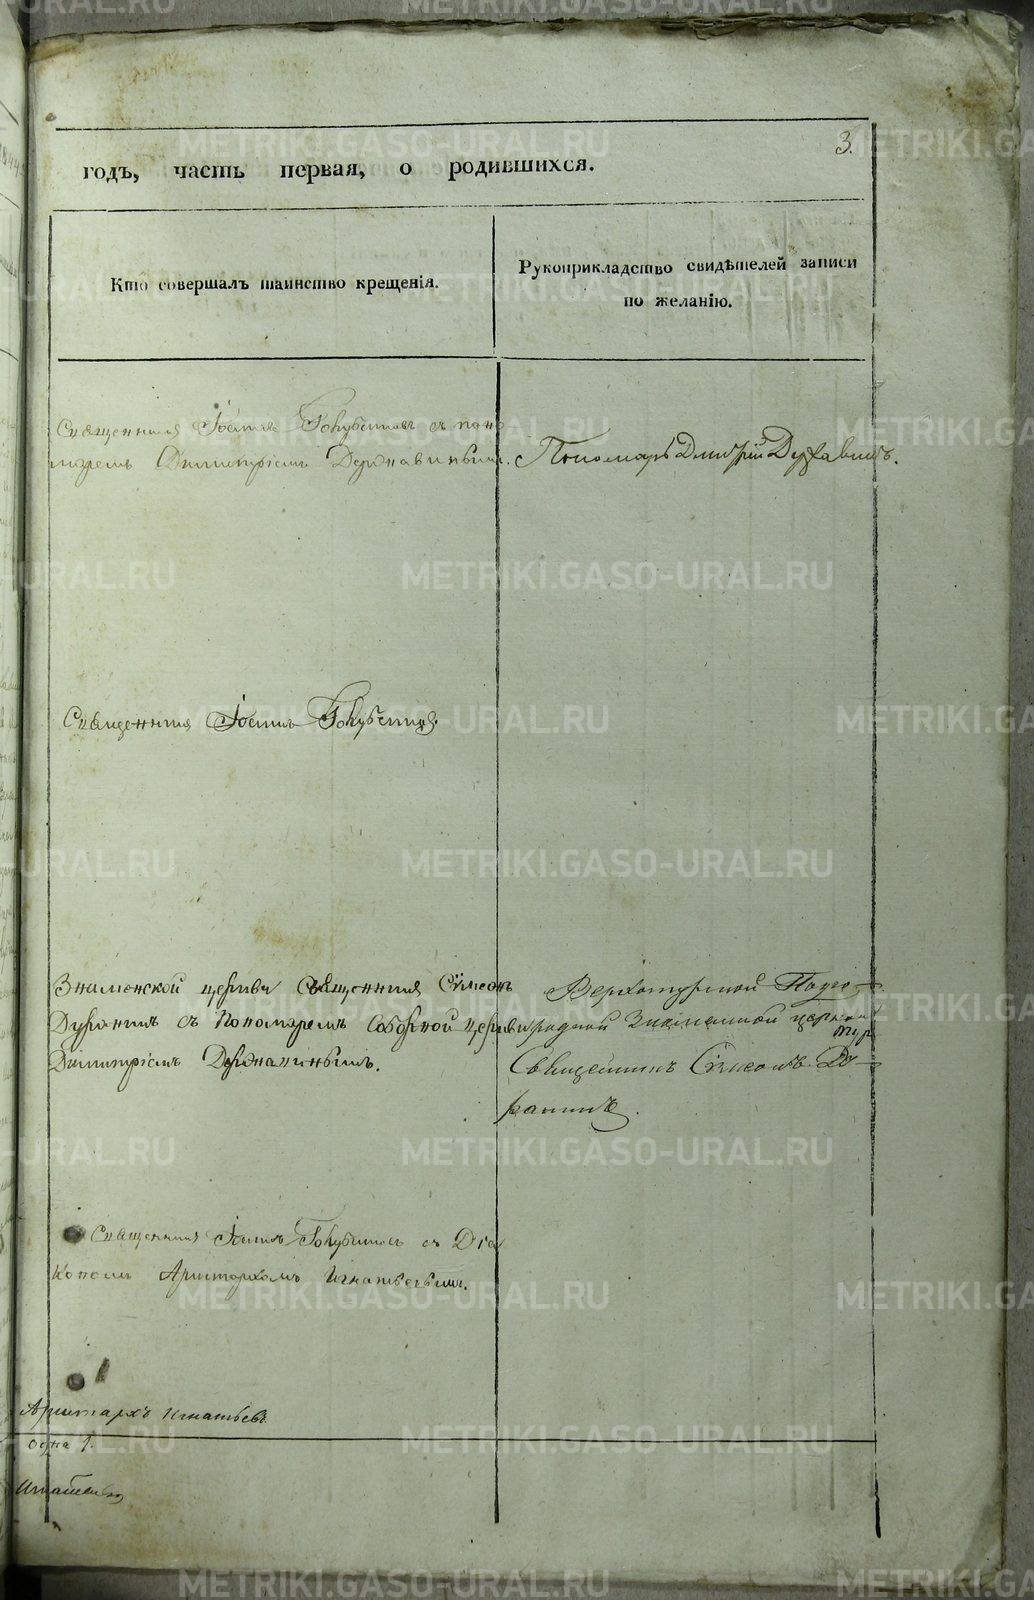 3.
годъ, часть первая, о родившихся.
Кто совершалъ таинство крещенія.
Рукоприкладство свидѣтелей записи
по желанію.
Священникъ Іоаннъ съ поно-
маремъ Димитріемъ Державинымъ.
Пономарь Дмитрій Державинъ.
Священникъ Іоаннъ
Знаменской церкви Священникъ Сѵмеонъ
съ Пономаремъ Соборной церкви
Димитріемъ Державинымъ.
Верхотурской
Знаменской церкви
Священникъ Сѵмеонъ
Священникъ Іоаннъ съ Діа
кономъ Аристархомъ Игнатьевымъ.
Аристархъ Игнатьевъ
одна 1.
METRIKI.GASO-URAL.RU